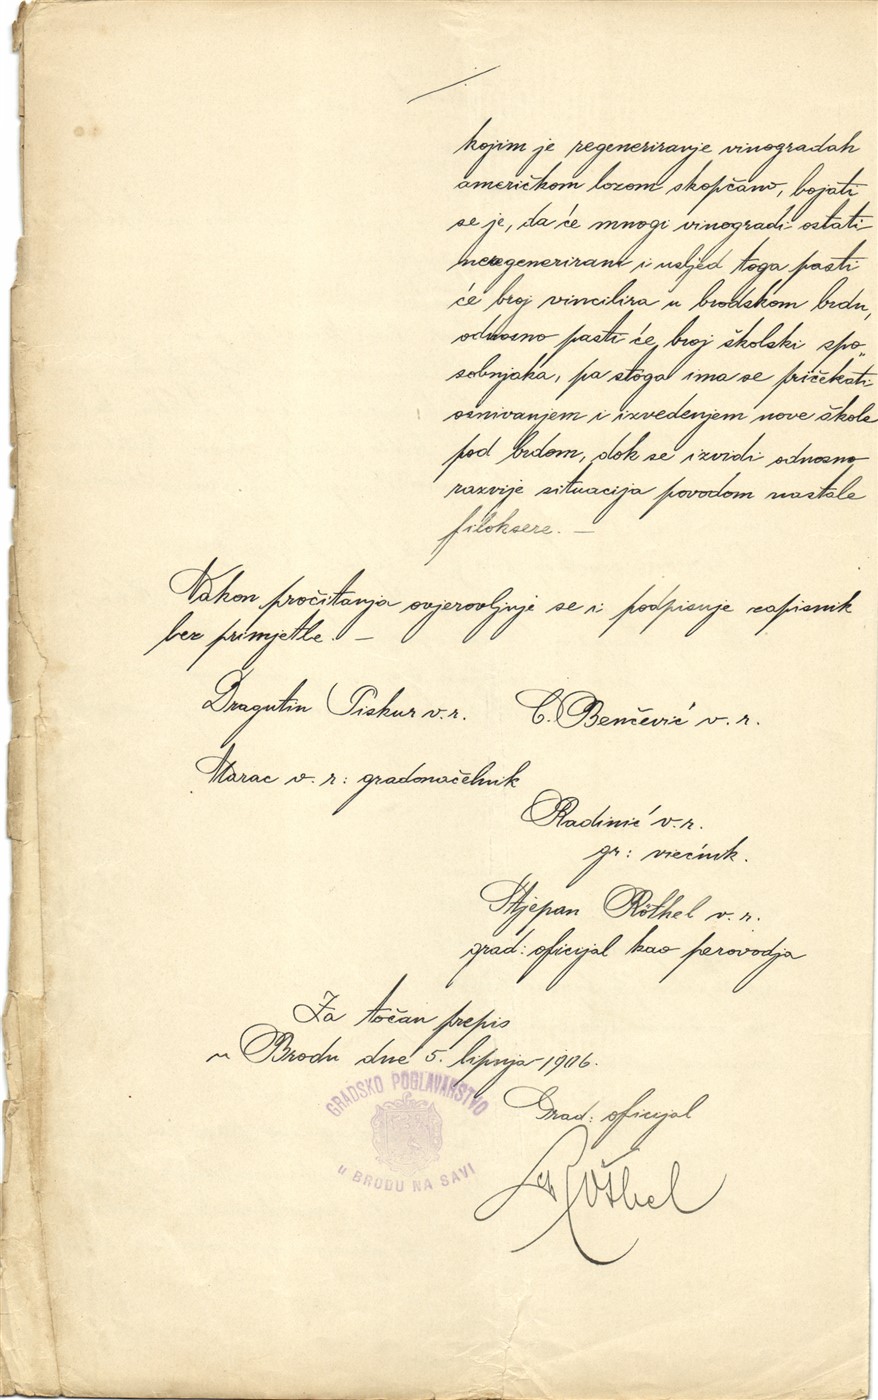 kojim je regeneriranje vinogradah
američkom lozom skopčano, bojati
se je, da će mnogi vinogradi ostati
neregenerirani i usljed toga pasti
će broj vincilira u brodskom brdu,
odnosno pasti će broj školski spo„
sobnjaka, pa stoga ima se pričekati
osnivanjem i izvedenjem nove škole
pod brdom, dok se izvidi odnosno
razvije situacija povodom nastale
filoksere. —
Nakon pročitanja ovjerovljuje se i podpisuje zapisnik
bez primjetbe. —
Dragutin Piskur v. r. C. Benčević v. r.
v. r: gradonačelnik
Radinić v. r.
gr: viećnik.
Stjepan Röthel v. r.
grad: oficijal kao perovodja
Za točan prepis
u Brodu dne 5. lipnja 1906.
GRADSKO POGLAVARSTVO
U BRODU NA SAVI
Grad: oficijal
Röthel